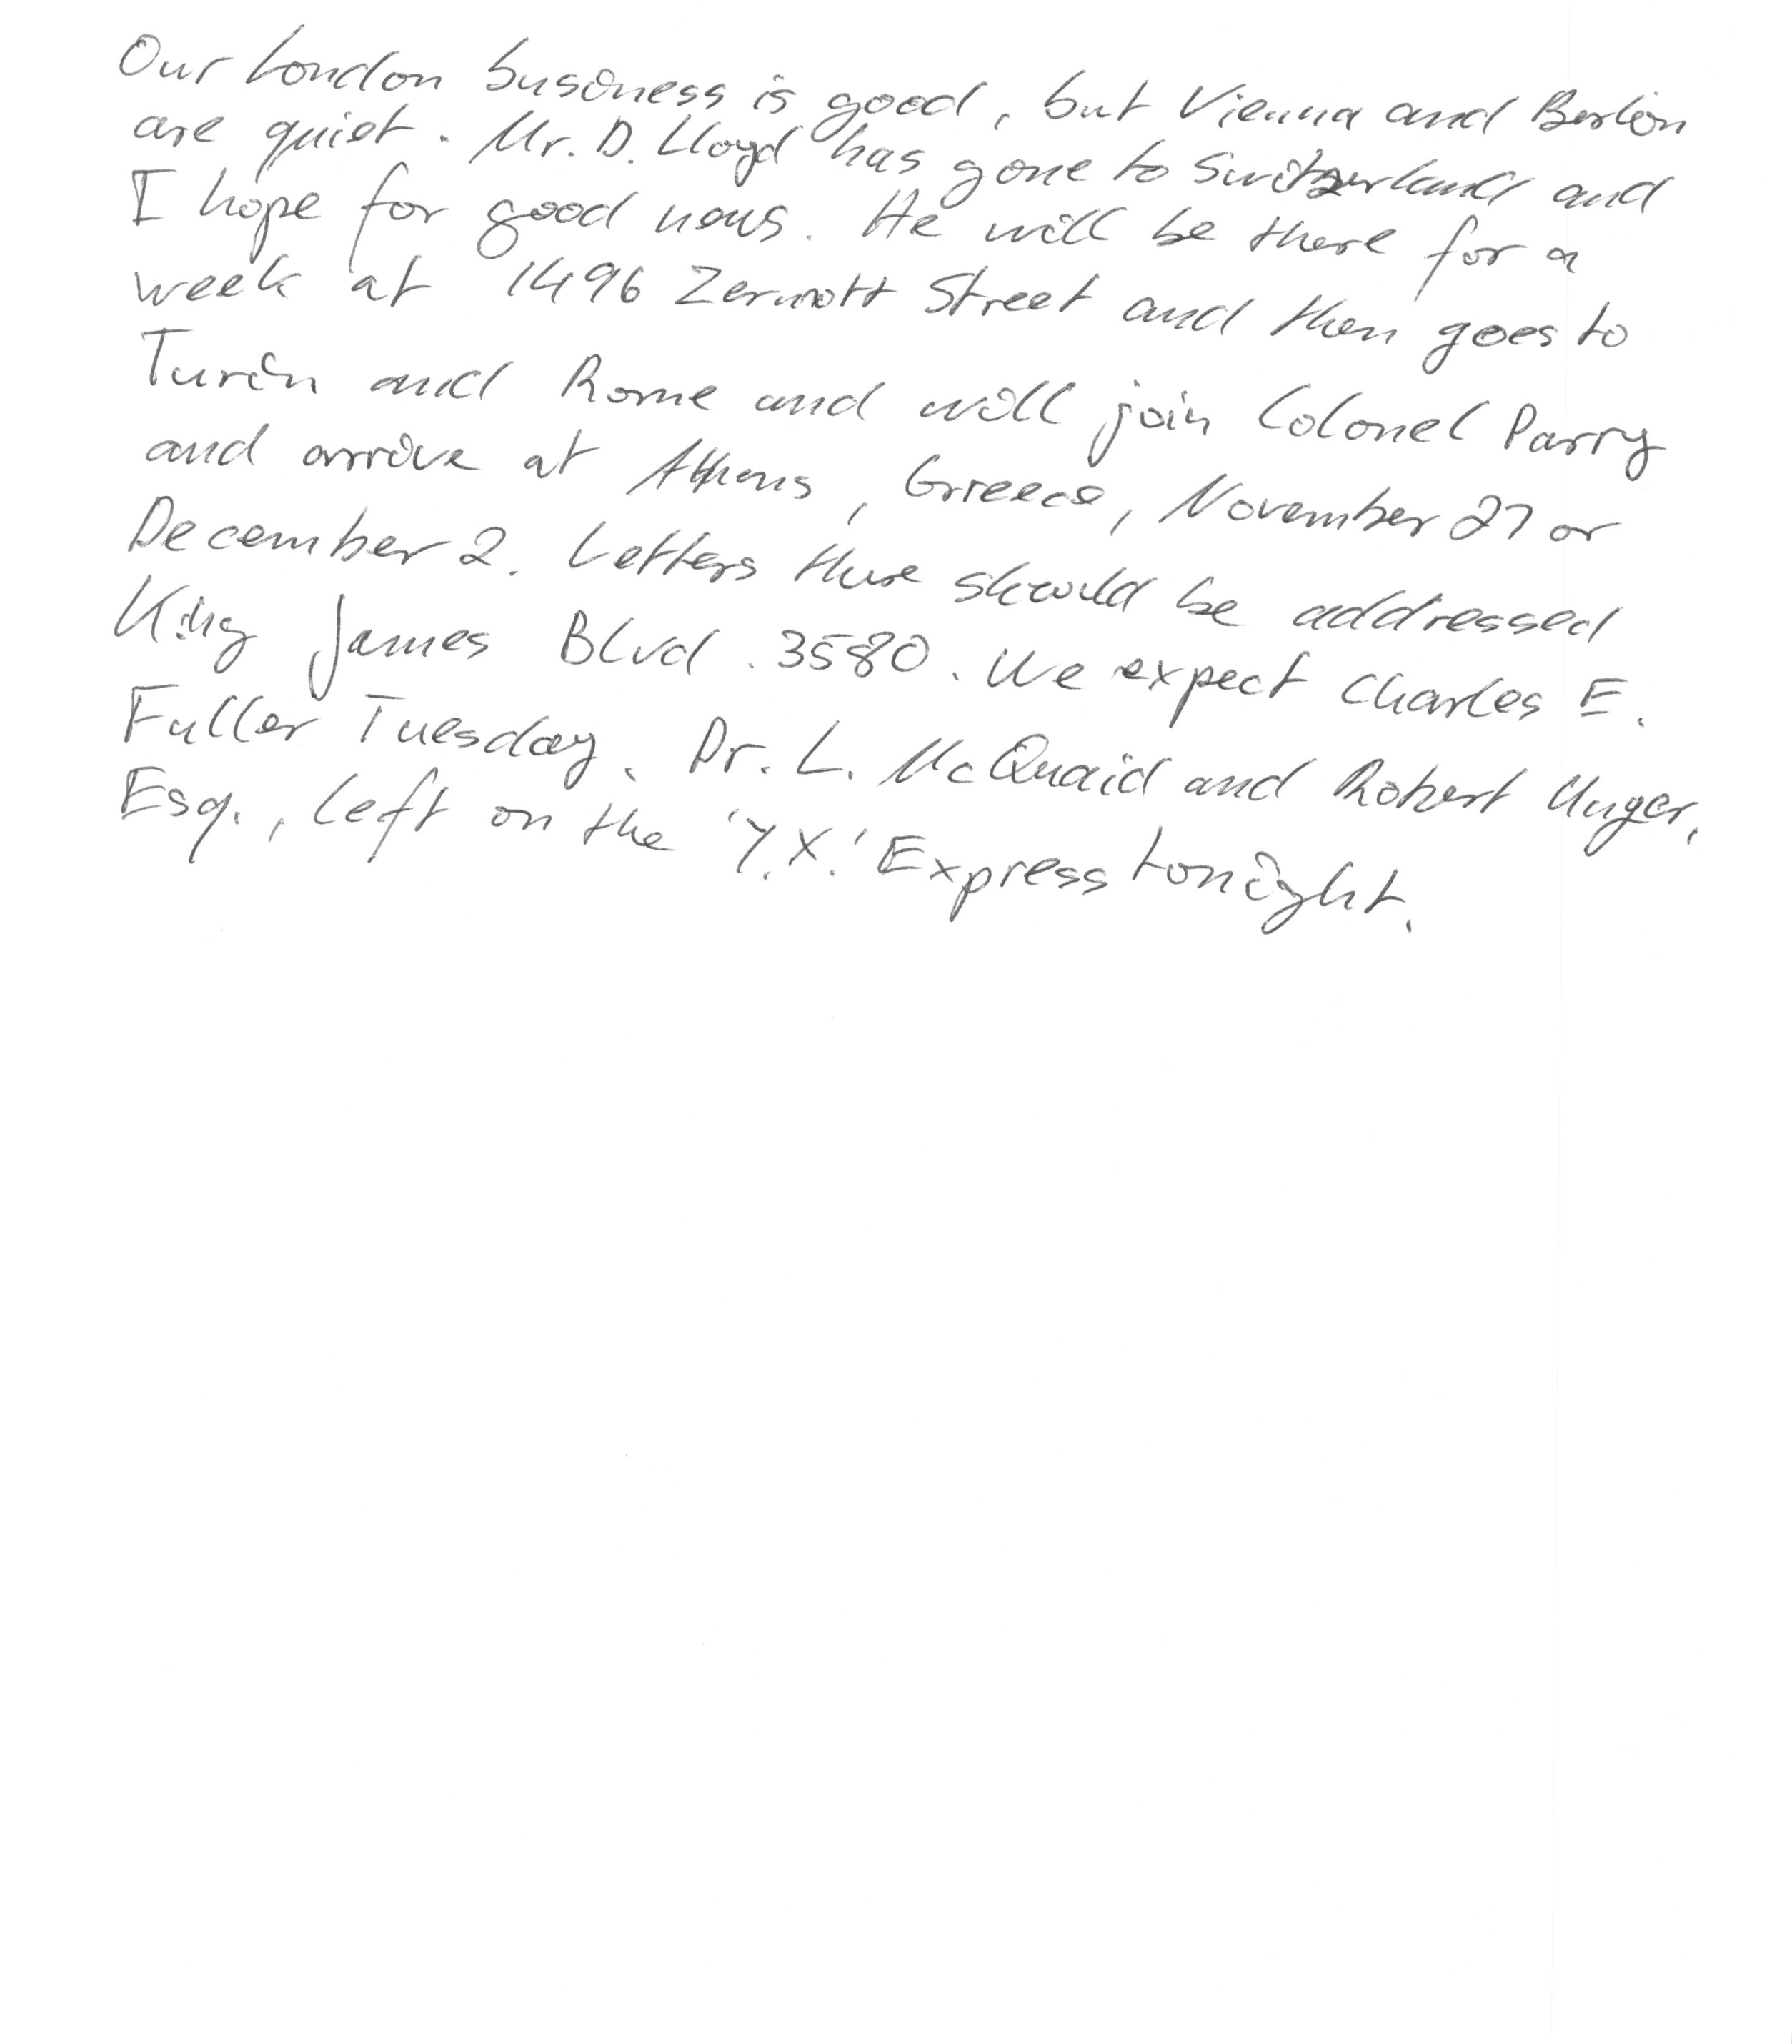 Our London business is good, but Vienna and Berlin
are quiet. Mr. D. Lloyd has gone to Switzerland and
I hope for good news. He will be there for a
week at 1496 Zermott Street and then goes to
Turin and Rome and will join Colonel Parry
and arrive at Athens, Greece, November 27 or
December 2. Letters there should be addressed
King James Blvd. 3580. We expect Charles E.
Fuller Tuesday. Dr. L. McQuaid and Robert Unger,
Esq., left on the 'Y.X.' Express tonight.